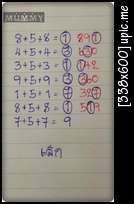 MUMMY
8+5+8=① 891
4+5+4=③ 630
3+5+3=① 142
9+5+9=③ 360
1+5+1=⑦ 327
8+5+8=① 519
7+5+7= 9
[338x600] upic.me